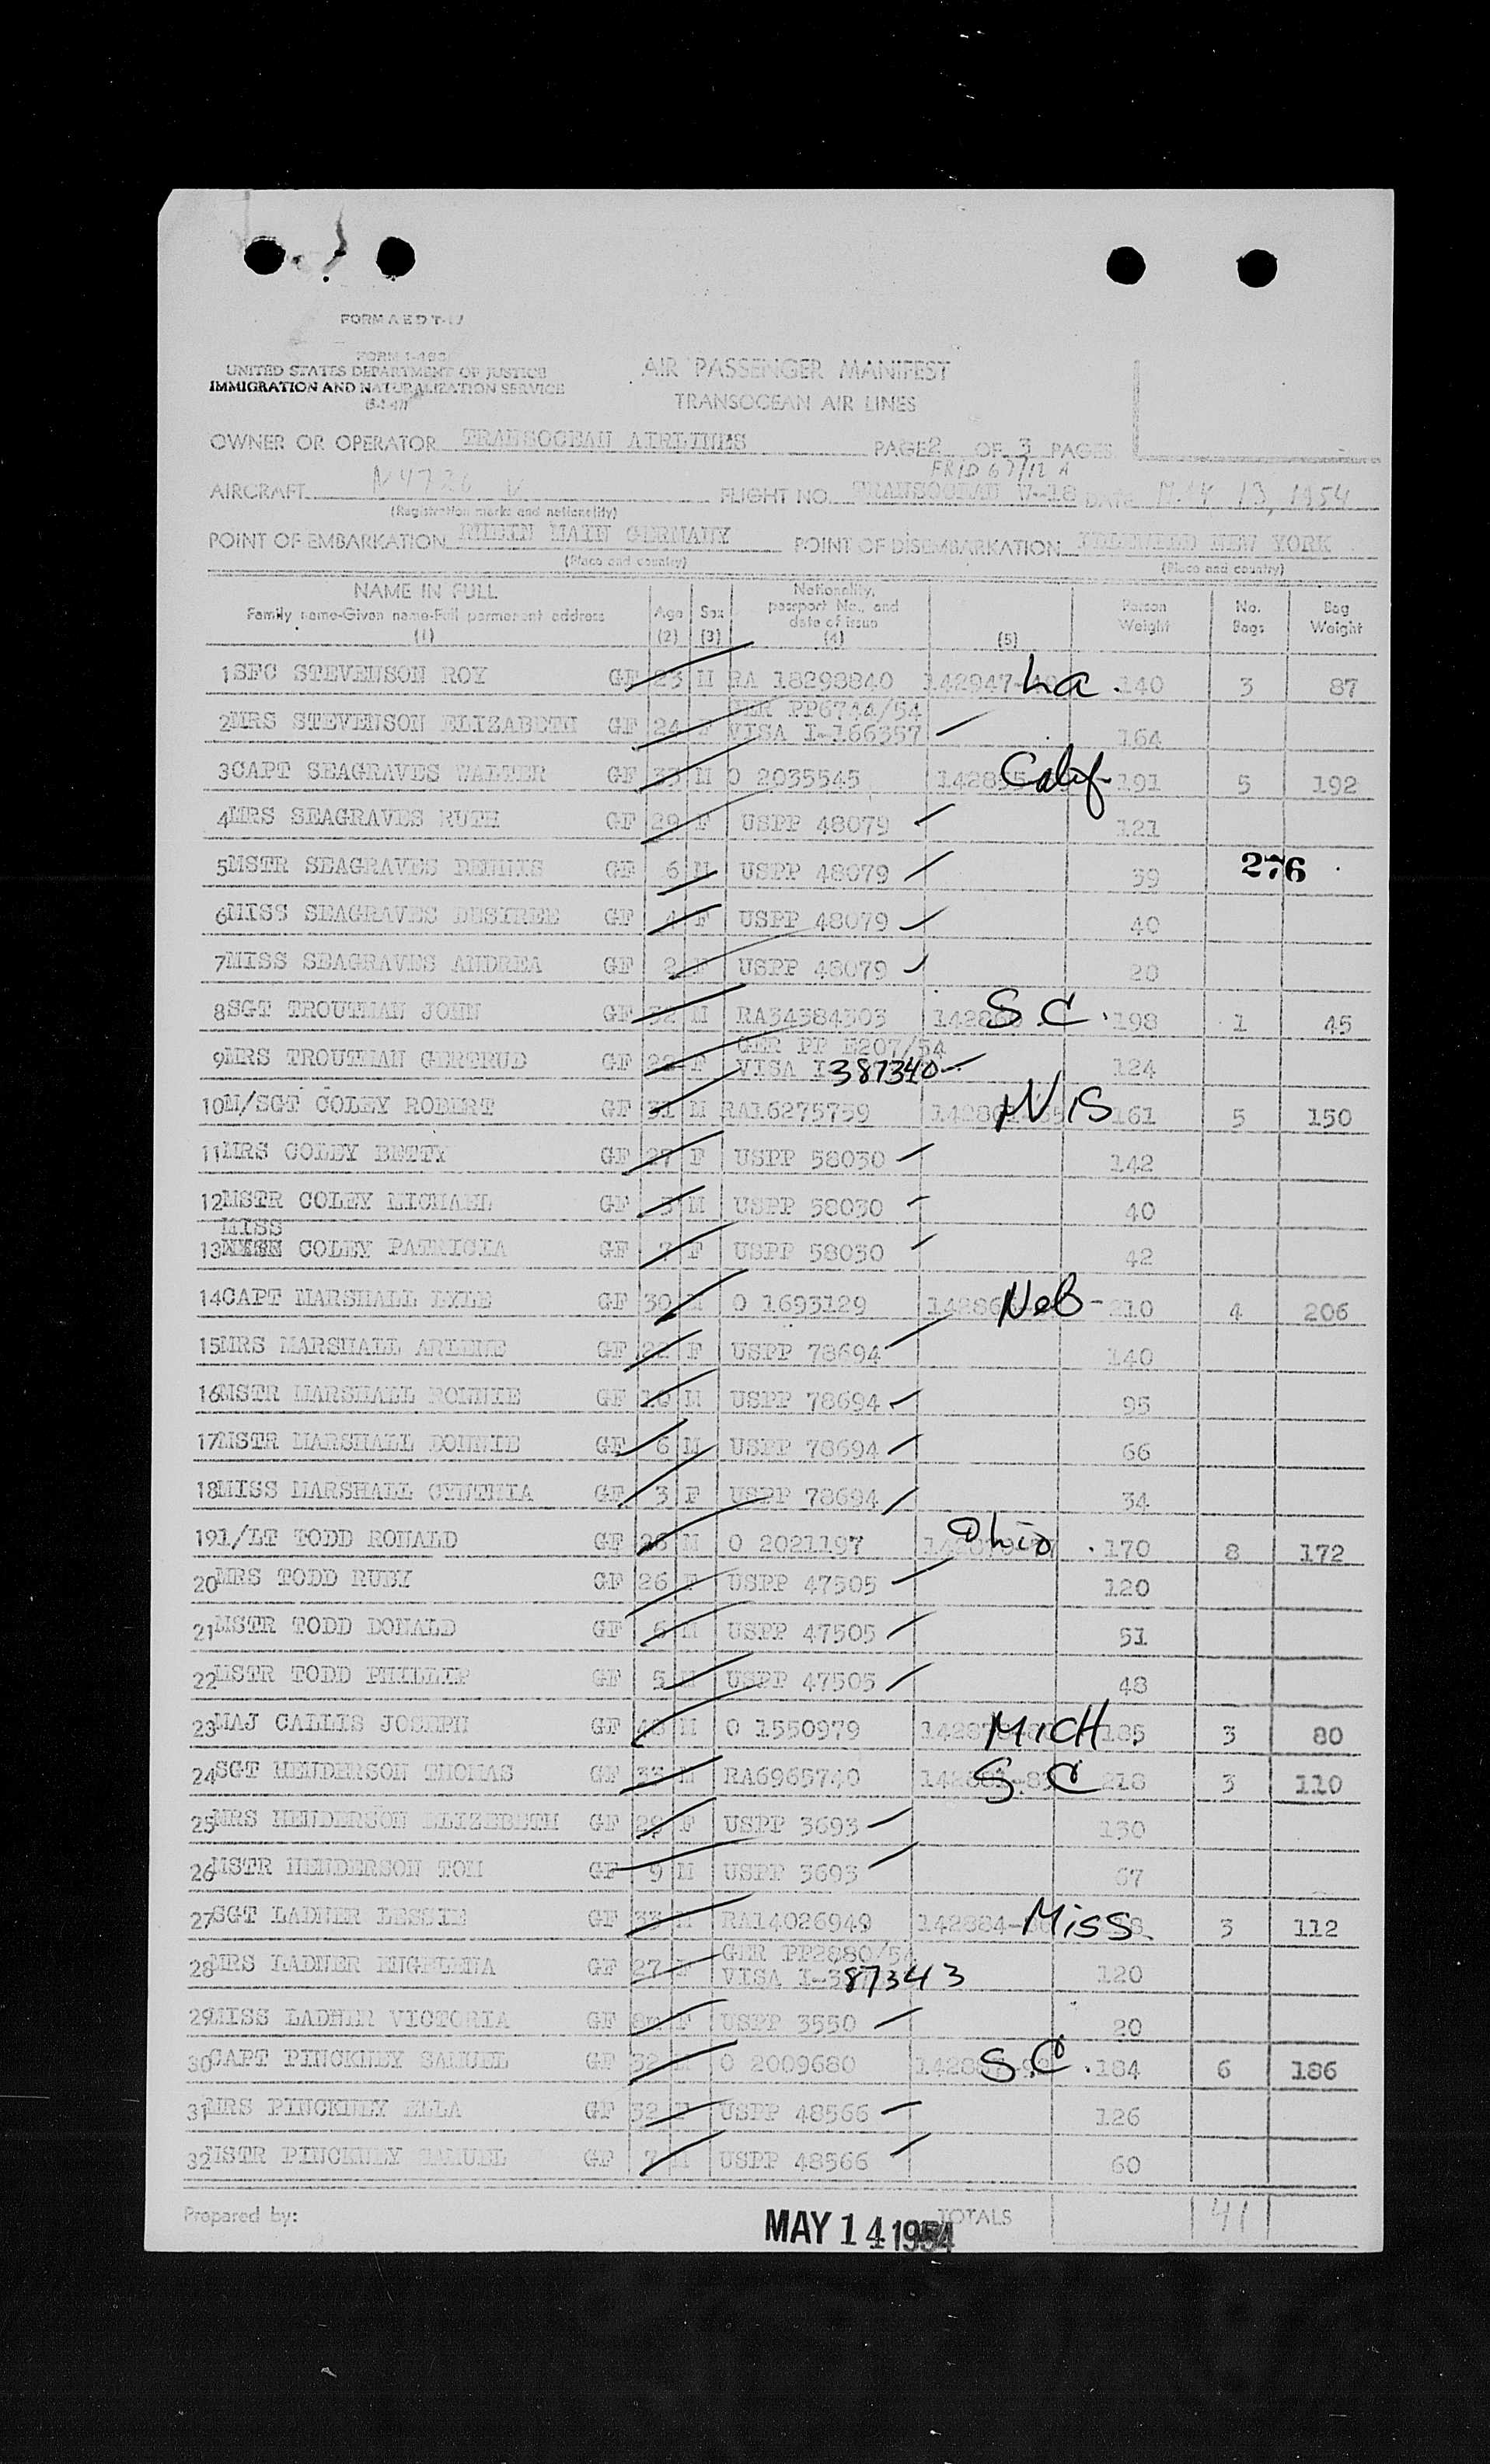 FORM A E D T-17
FORM I-493
UNITED STATES DEPARTMENT OF JUSTICE
IMMIGRATION AND NATURALIZATION SERVICE
AIR PASSENGER MANIFEST
TRANSOCEAN AIR LINES
OWNER OR OPERATOR TRANSOCEAN AIRLINES PAGE 2 OF 3 PAGES
AIRCRAFT N4726 V FLIGHT NO. TRANSOCEAN V-18 DATE MAY 13, 1954
(Registration marks and nationality)
POINT OF EMBARKATION RHEIN MAIN GERMANY POINT OF DISEMBARKATION IDLEWILD NEW YORK
(Place and country) (Place and country)
NAME IN FULL
Family name-Given name-Full permanent address
(1) Age (2) Sex (3) Nationality, passport No., and date of issue (4) (5) Person Weight No. Bags Bag Weight
1 SFC STEVENSON ROY GF 23 M RA 18298840 142947 La. 140 3 87
2 MRS STEVENSON ELIZABETH GF 24 F GER PP6744/54 VISA I-166357 164
3 CAPT SEAGRAVES WALTER GF 33 M O 2035545 Calif- 191 5 192
4 MRS SEAGRAVES RUTH GF 29 F USPP 48079 121
5 MSTR SEAGRAVES DENNIS GF 6 M USPP 48079 59 276
6 MISS SEAGRAVES DESIREE GF 4 F USPP 48079 40
7 MISS SEAGRAVES ANDREA GF 2 F USPP 48079 20
8 SGT TROUTMAN JOHN GF 32 M RA34384303 S.C. 198 1 45
9 MRS TROUTMAN GERTRUD GF 22 F GER PP E207/54 VISA I 387340 124
10 M/SGT COLEY ROBERT GF 31 M RA16275759 WIS 161 5 150
11 MRS COLEY BETTY GF 27 F USPP 58030 142
12 MSTR COLEY MICHAEL GF 3 M USPP 58030 40
MISS
13 COLEY PATRICIA GF 7 F USPP 58030 42
14 CAPT MARSHALL LYLE GF 30 M O 1693129 Neb- 210 4 206
15 MRS MARSHALL ARLENE GF F USPP 78694 140
16 MSTR MARSHALL RONNIE GF 10 M USPP 78694 95
17 MSTR MARSHALL DONNIE GF 6 M USPP 78694 66
18 MISS MARSHALL CYNTHIA GF 3 F USPP 78694 34
19 1/LT TODD RONALD GF 26 M O 2021197 Ohio 170 8 172
20 MRS TODD RUBY GF 26 F USPP 47505 120
21 MSTR TODD DONALD GF 6 M USPP 47505 51
22 MSTR TODD PHILLIP GF 5 M USPP 47505 48
23 MAJ CALLIS JOSEPH GF M O 1550979 MICH. 185 3 80
24 SGT HENDERSON THOMAS GF 33 M RA6965740 S.C 218 3 110
25 MRS HENDERSON ELIZEBETH GF 29 F USPP 3693 130
26 MSTR HENDERSON TOM GF 9 M USPP 3693 67
27 SGT LADNER LESSIE GF 33 M RA14026949 142884 Miss. 3 112
28 MRS LADNER ENGELENA GF 27 F GER PP2880/54 VISA I-387343 120
29 MISS LADNER VICTORIA GF 8m F USPP 3550 20
30 CAPT PINCKNEY SAMUEL GF 32 M O 2009680 S.C. 184 6 186
31 MRS PINCKNEY ELLA GF 32 F USPP 48566 126
32 MSTR PINCKNEY SAMUEL GF 7 M USPP 48566 60
Prepared by: MAY 14 1954 TOTALS 41